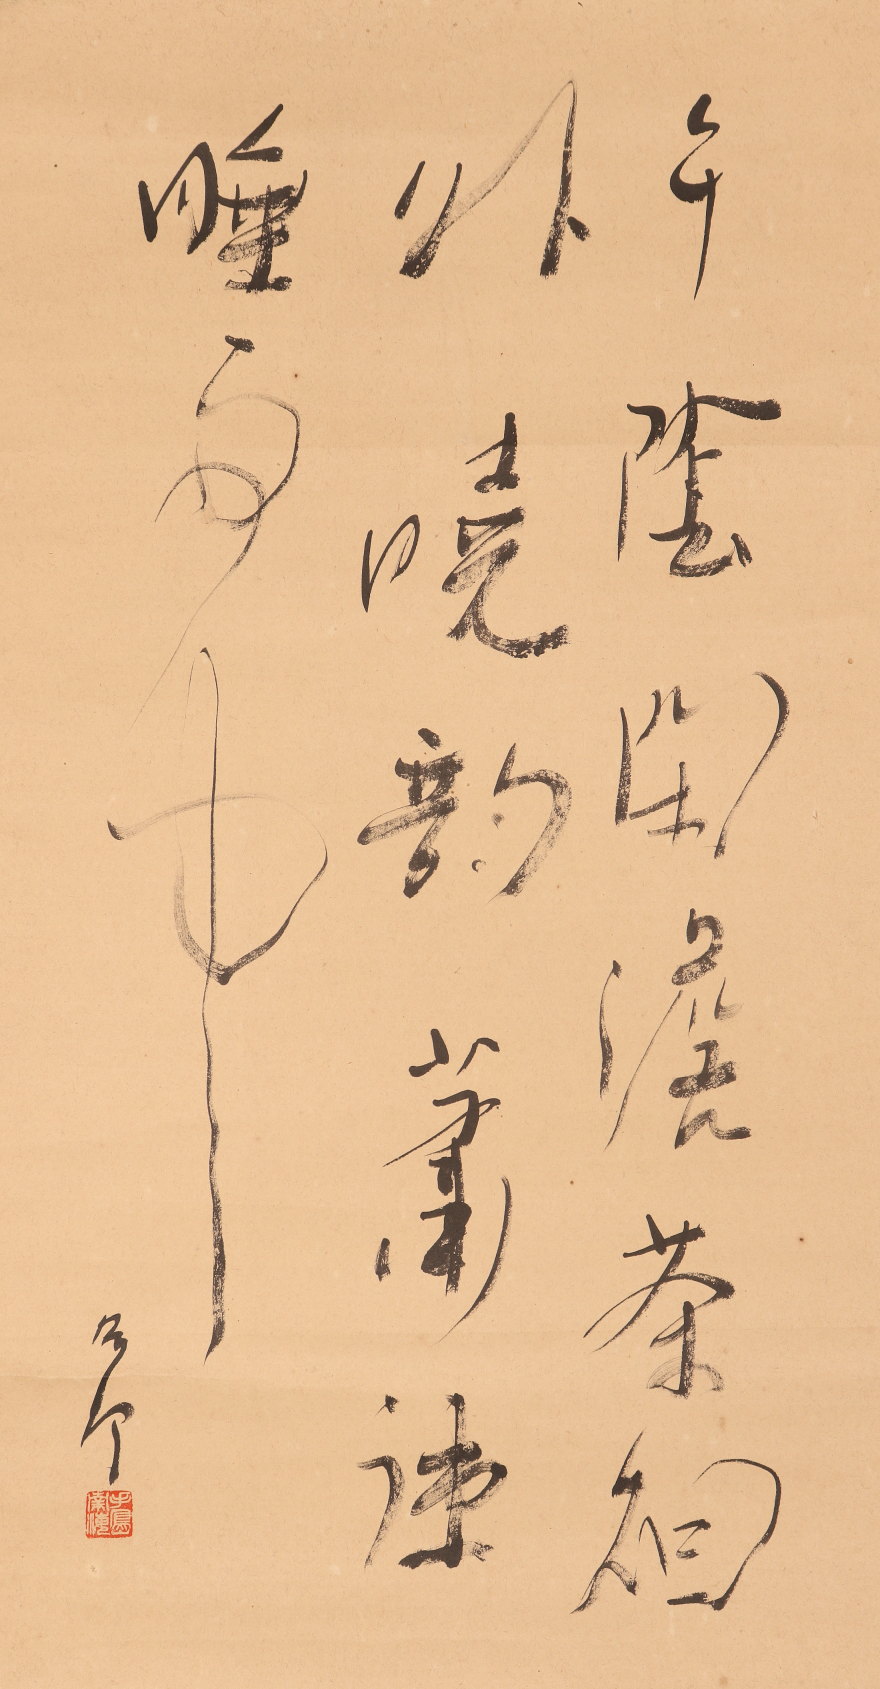 午陰閑澹茶烟
外曉韵蕭疎
睡雨中
右卿